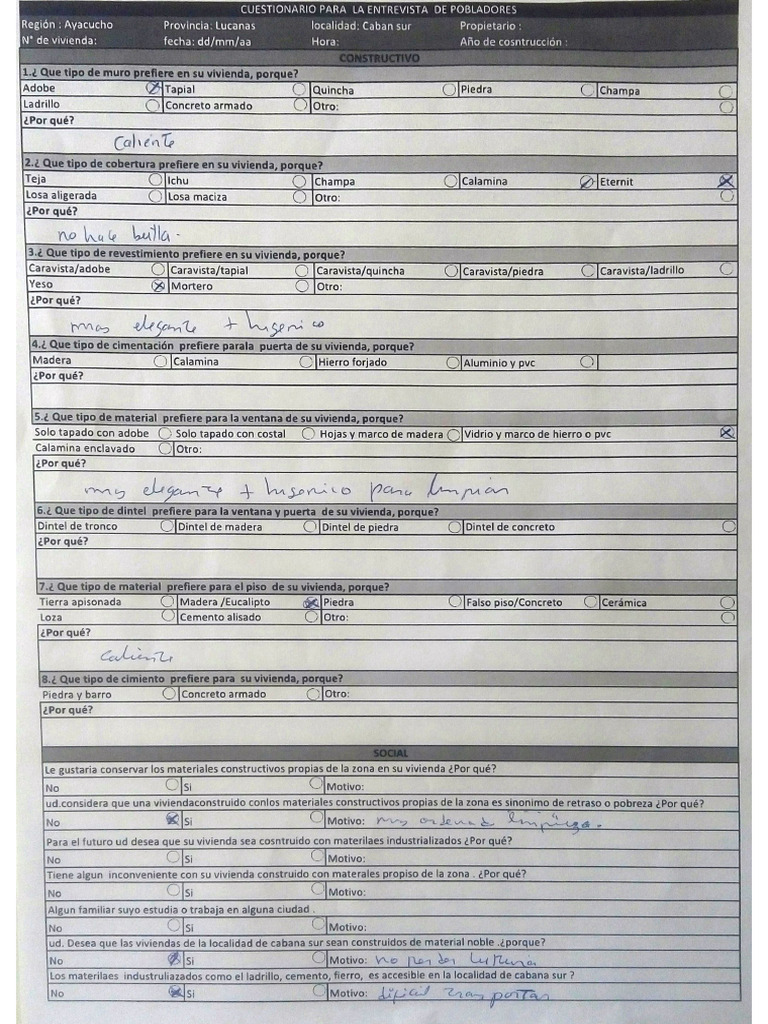 CUESTIONARIO PARA LA ENTREVISTA DE POBLADORES
Región : Ayacucho Provincia: Lucanas localidad: Caban sur Propietario :
N° de vivienda: fecha: dd/mm/aa Hora: Año de cosntrucción :
CONSTRUCTIVO
1.¿ Que tipo de muro prefiere en su vivienda, porque?
Adobe Tapial Quincha Piedra Champa
Ladrillo Concreto armado Otro:
¿Por qué?
Caliente
2.¿ Que tipo de cobertura prefiere en su vivienda, porque?
Teja Ichu Champa Calamina Eternit
Losa aligerada Losa maciza Otro:
¿Por qué?
no hace bulla.
3.¿ Que tipo de revestimiento prefiere en su vivienda, porque?
Caravista/adobe Caravista/tapial Caravista/quincha Caravista/piedra Caravista/ladrillo
Yeso Mortero Otro:
¿Por qué?
mas elegante + higenico
4.¿ Que tipo de cimentación prefiere parala puerta de su vivienda, porque?
Madera Calamina Hierro forjado Aluminio y pvc
¿Por qué?
5.¿ Que tipo de material prefiere para la ventana de su vivienda, porque?
Solo tapado con adobe Solo tapado con costal Hojas y marco de madera Vidrio y marco de hierro o pvc
Calamina enclavado Otro:
¿Por qué?
mas elegante + higenico para limpiar
6.¿ Que tipo de dintel prefiere para la ventana y puerta de su vivienda, porque?
Dintel de tronco Dintel de madera Dintel de piedra Dintel de concreto
¿Por qué?
7.¿ Que tipo de material prefiere para el piso de su vivienda, porque?
Tierra apisonada Madera /Eucalipto Piedra Falso piso/Concreto Cerámica
Loza Cemento alisado Otro:
¿Por qué?
caliente
8.¿ Que tipo de cimiento prefiere para su vivienda, porque?
Piedra y barro Concreto armado Otro:
¿Por qué?
SOCIAL
Le gustaria conservar los materiales constructivos propias de la zona en su vivienda ¿Por qué?
No Si Motivo:
ud.considera que una viviendaconstruido conlos materiales constructivos propias de la zona es sinonimo de retraso o pobreza ¿Por qué?
No Si Motivo: mas
Para el futuro ud desea que su vivienda sea cosntruido con materilaes industrializados ¿Por qué?
No Si Motivo:
Tiene algun inconveniente con su vivienda construido con materales propiso de la zona . ¿Por qué?
No Si Motivo:
Algun familiar suyo estudia o trabaja en alguna ciudad .
No Si Motivo:
ud. Desea que las viviendas de la localidad de cabana sur sean construidos de material noble .¿porque?
No Si Motivo: no perder
Los materilaes industruliazados como el ladrillo, cemento, fierro, es accesible en la localidad de cabana sur ?
No Si Motivo: dificil transportar